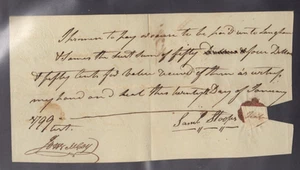 I promise to pay or cause to be paid unto
& James the Just Sum of fifty four Dollars
& fifty Cents for Value received of them as witness
my hand and seal this twentieth Day of January
1799
Test.
Saml Hooper